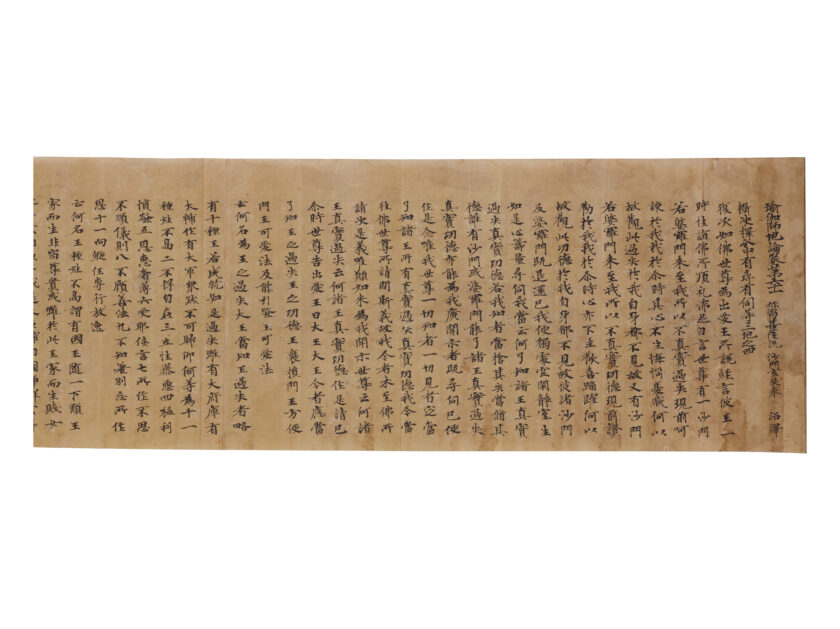 瑜伽師地論卷第六十一 弥勒菩薩說 沙門玄奘奉 詔譯
攝決擇分中有尋有伺等三地之四
復次如佛世尊為出愛王所說經言彼王一
時往詣佛所頂礼佛足白言世尊有一沙門
若婆羅門来至我所以不真實過失現前訶
諫於我我於尒時其心不生悔惱憂慼何以
故觀此過失於我自身都不見故又有沙門
若婆羅門来至我所以不真實功德現前讚
勵於我我於尒時心亦不生歡喜踊躍何以
故觀此功德於我自身都不見故彼諸沙門
及婆羅門既退還已我便獨處空閑靜室生
如是心籌量尋伺我當云何了知諸王真實
過失真實功德若我知者當捨其失當脩其
德誰有沙門或婆羅門能了諸王真實過失
真實功德亦能為我廣開示者既尋伺已便
作是念唯我世尊一切知者一切見者定當
了知諸王所有真實過失真實功德我今當
往佛世尊所請問斯義故我今者来至佛所
請決是義唯願如来為我開示世尊云何諸
王真實過失云何諸王真實功德作是請已
尒時世尊告出愛王曰大王大王今者應當
了知王之過失王之功德王衰損門王方便
門王可愛法及能引發王可愛法
云何名為王之過失大王當知王過失者略
有十種王若成就如是過失雖有大府庫有
大輔佐有大軍衆然不可歸仰何等為十一
種姓不高二不得自在三立性暴惡四猛利
憤發五恩惠奢薄六受邪佞言七所作不思
不順儀則八不顧善法九不知差別忘所作
恩十一向縱任專行放逸
云何名王種姓不高謂有國王隨一下類王
家而生非宿尊貴或雖於此王家而生賤女